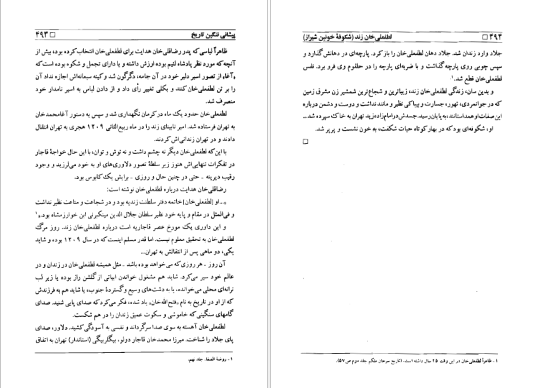 پیشانی ننگین تاریخ □ ۴۹۳
ظاهراً لباسی که پدر رضاقلی‌خان هدایت برای لطفعلی‌خان انتخاب کرده بوده بیش از
آنچه که مورد نظر پادشاه لئیم بوده ارزش داشته و یا دارای تجمل و شکوه بوده است که
«آغا» از تصور اسیر دلیر خود در آن جامه، دگرگون شد و کینه سبعانه‌اش اجازه نداد آن
را بر تن لطفعلی‌خان کنند و بکلی تغییر رأی داد و از دادن لباس به اسیر نامدار خود
منصرف شد.
لطفعلی‌خان حدود یک ماه در کرمان نگهداری شد و سپس به دستور آغامحمدخان
به تهران فرستاده شد. اسیر نابینای زند را در ماه ربیع‌الثانی ۱۲۰۹ هجری به تهران انتقال
دادند و در تهران زندانی‌اش کردند.
با این‌که لطفعلی‌خان دیگر نه چشم داشت و نه توش و توان، با این حال خواجهٔ قاجار
در تفکرات تنهایی‌اش هنوز زیر سلطهٔ تصور دلاوری‌های او به خود می‌لرزید و وجود
رقیب دیرینه ـ حتی در چنین حال و روزی ـ برایش یک کابوس بود.
رضاقلی‌خان هدایت درباره لطفعلی‌خان نوشته است:
ـ ... او (لطفعلی‌خان) خاتمه دفتر سلطنت زندیه بود و در شجاعت و مناعت نظیر نداشت
و فی‌المثل در مقام و پایه خود نظیر سلطان جلال الدین مینکبرنی ابن خوارزمشاه بود.۱
و این داوری یک مورخ عصر قاجاریه است درباره لطفعلی‌خان زند. روز مرگ
لطفعلی‌خان به تحقیق معلوم نیست. اما قدر مسلم اینست که در سال ۱۲۰۹ بوده و شاید
یکی، دو ماهی پس از انتقالش به تهران...
آن روز ـ هر روزی که می‌خواهد بوده باشد ـ مثل همیشه لطفعلی‌خان در زندان و در
عالم خود سیر می‌کرد. شاید هم مشغول خواندن ابیاتی از گلشن راز بوده یا زیر لب
ترانه‌ای محلی می‌خوانده، یا به دشت‌های وسیع و گستردهٔ جنوب، یا شاید هم به فرزندش
که از او در تاریخ به نام «فتح‌الله‌خان» یاد شده، فکر می‌کرد که صدای پایی شنید. صدای
گامهای سنگینی که خاموشی و سکوت عمیق زندان را در هم شکست.
لطفعلی‌خان آهسته به سوی صدا سرگرداند و نفسی به آسودگی کشید. دلاور، صدای
پای جلاد را شناخت. میرزا محمدخان قاجار دولو، بیگلربیگی (استاندار) تهران به اتفاق
۱ ـ روضة الصفا. جلد نهم.
۴۹۴ □ لطفعلی‌خان زند (شکوفهٔ خونین شیراز)
جلاد وارد زندان شد. جلاد دهان لطفعلی‌خان را باز کرد، پارچه‌ای در دهانش گذارد و
سپس چوبی روی پارچه گذاشت و با ضربه‌ای پارچه را در حلقوم وی فرو برد. نفس
لطفعلی‌خان قطع شد.۱
و بدین سان، زندگی لطفعلی‌خان زند، زیباترین و شجاع‌ترین شمشیر زن مشرق زمین
که در جوانمردی، تهور، جسارت و بیباکی نظیر و مانند نداشت و دوست و دشمن درباره
این صفات او همداستانند، به پایان رسید. جسدش در امامزاده زید تهران به خاک سپرده شد...
او، شکوفه‌ای بود که در بهار کوتاه حیات شکفت، به خون نشست و پرپر شد.
□
۱ ـ ظاهراً لطفعلی‌خان در این وقت ۲۵ سال داشته است. (تاریخ سرجان ملکم جلد دوم ص ۵۷).